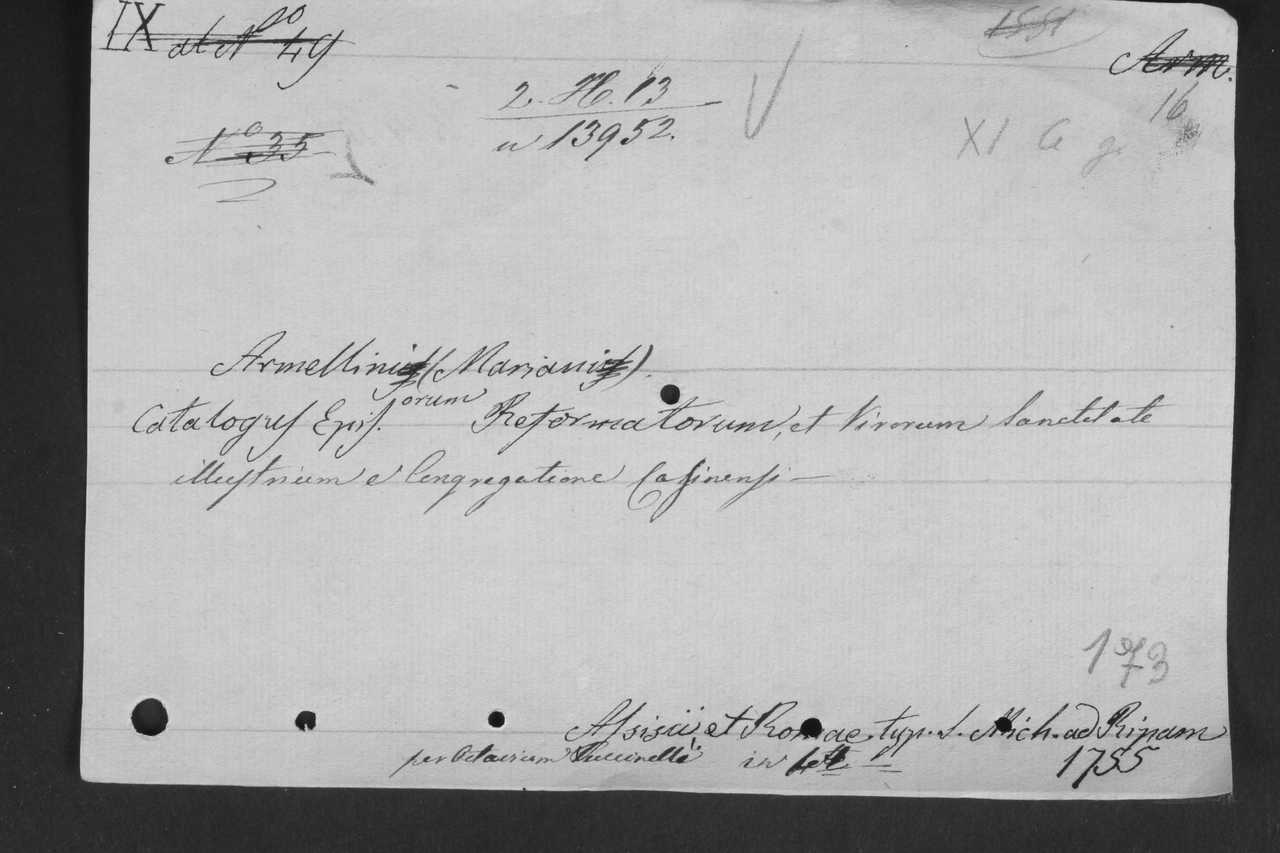 IX al No 49
1551
Arm.
2. H. 13
u 13952.
No 35
16
XI G g.
Armellini (Mariani)
Catalogus Episcorum Reformatorum, et Virorum Sanctitate
illustrium e Congregatione Casinensi —
173
Assisii et Romae, typ. S. Mich. ad Ripam
per Octavium Puccinelli in 1755